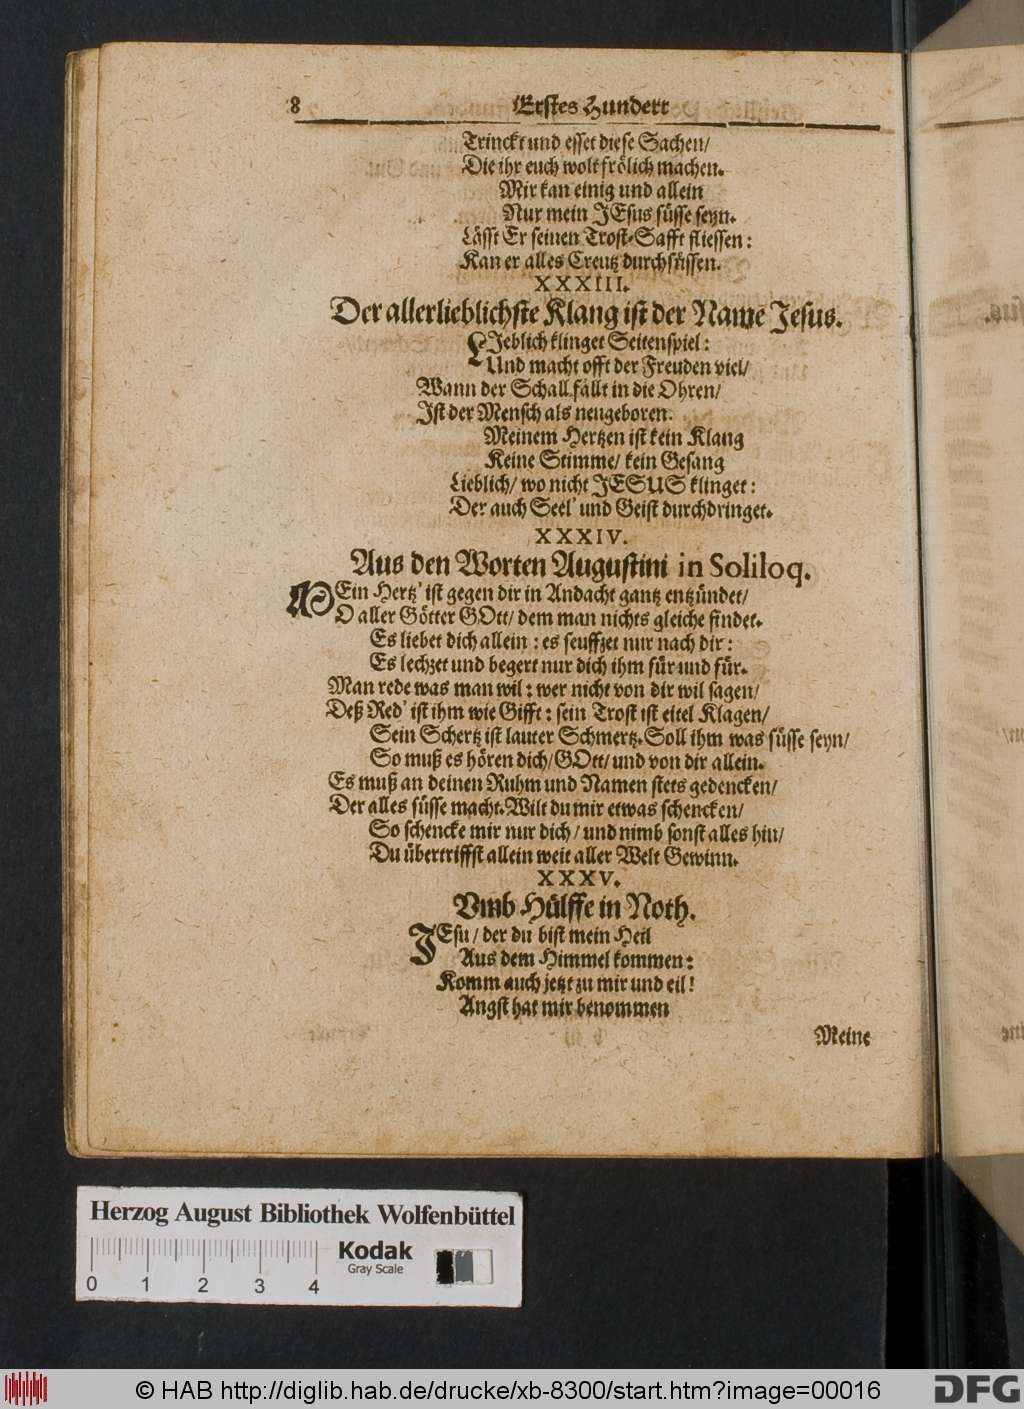 8 Erstes Hundert
Trinckt und esset diese Sachen/
Die ihr euch wolt frölich machen.
Mir kan einig und allein
Nur mein JEsus süsse seyn.
Lässt Er seinen Trost-Safft fliessen:
Kan er alles Creutz durchsüssen.
XXXIII.
Der allerlieblichste Klang ist der Name Jesus.
LJeblich klinget Seitenspiel:
Und macht offt der Freuden viel/
Wann der Schall fällt in die Ohren/
Jst der Mensch als neugeboren.
Meinem Hertzen ist kein Klang
Keine Stimme/ kein Gesang
Lieblich/ wo nicht JESUS klinget:
Der auch Seel' und Geist durchdringet.
XXXIV.
Aus den Worten Augustini in Soliloq.
MEin Hertz' ist gegen dir in Andacht gantz entzündet/
O aller Götter GOtt/ dem man nichts gleiche findet.
Es liebet dich allein: es seuffzet nur nach dir:
Es lechzet und begert nur dich ihm für und für.
Man rede was man wil: wer nicht von dir wil sagen/
Deß Red' ist ihm wie Gifft: sein Trost ist eitel Klagen/
Sein Schertz ist lauter Schmertz. Soll ihm was süsse seyn/
So muß es hören dich/ GOtt/ und von dir allein.
Es muß an deinen Ruhm und Namen stets gedencken/
Der alles süsse macht. Wilt du mir etwas schencken/
So schencke mir nur dich/ und nimb sonst alles hin/
Du übertriffst allein weit aller Welt Gewinn.
XXXV.
Vmb Hülffe in Noth.
JEsu/ der du bist mein Heil
Aus dem Himmel kommen:
Komm auch jetzt zu mir und eil!
Angst hat mir benommen
Meine
Herzog August Bibliothek Wolfenbüttel
Kodak
Gray Scale
0 1 2 3 4
© HAB http://diglib.hab.de/drucke/xb-8300/start.htm?image=00016
DFG